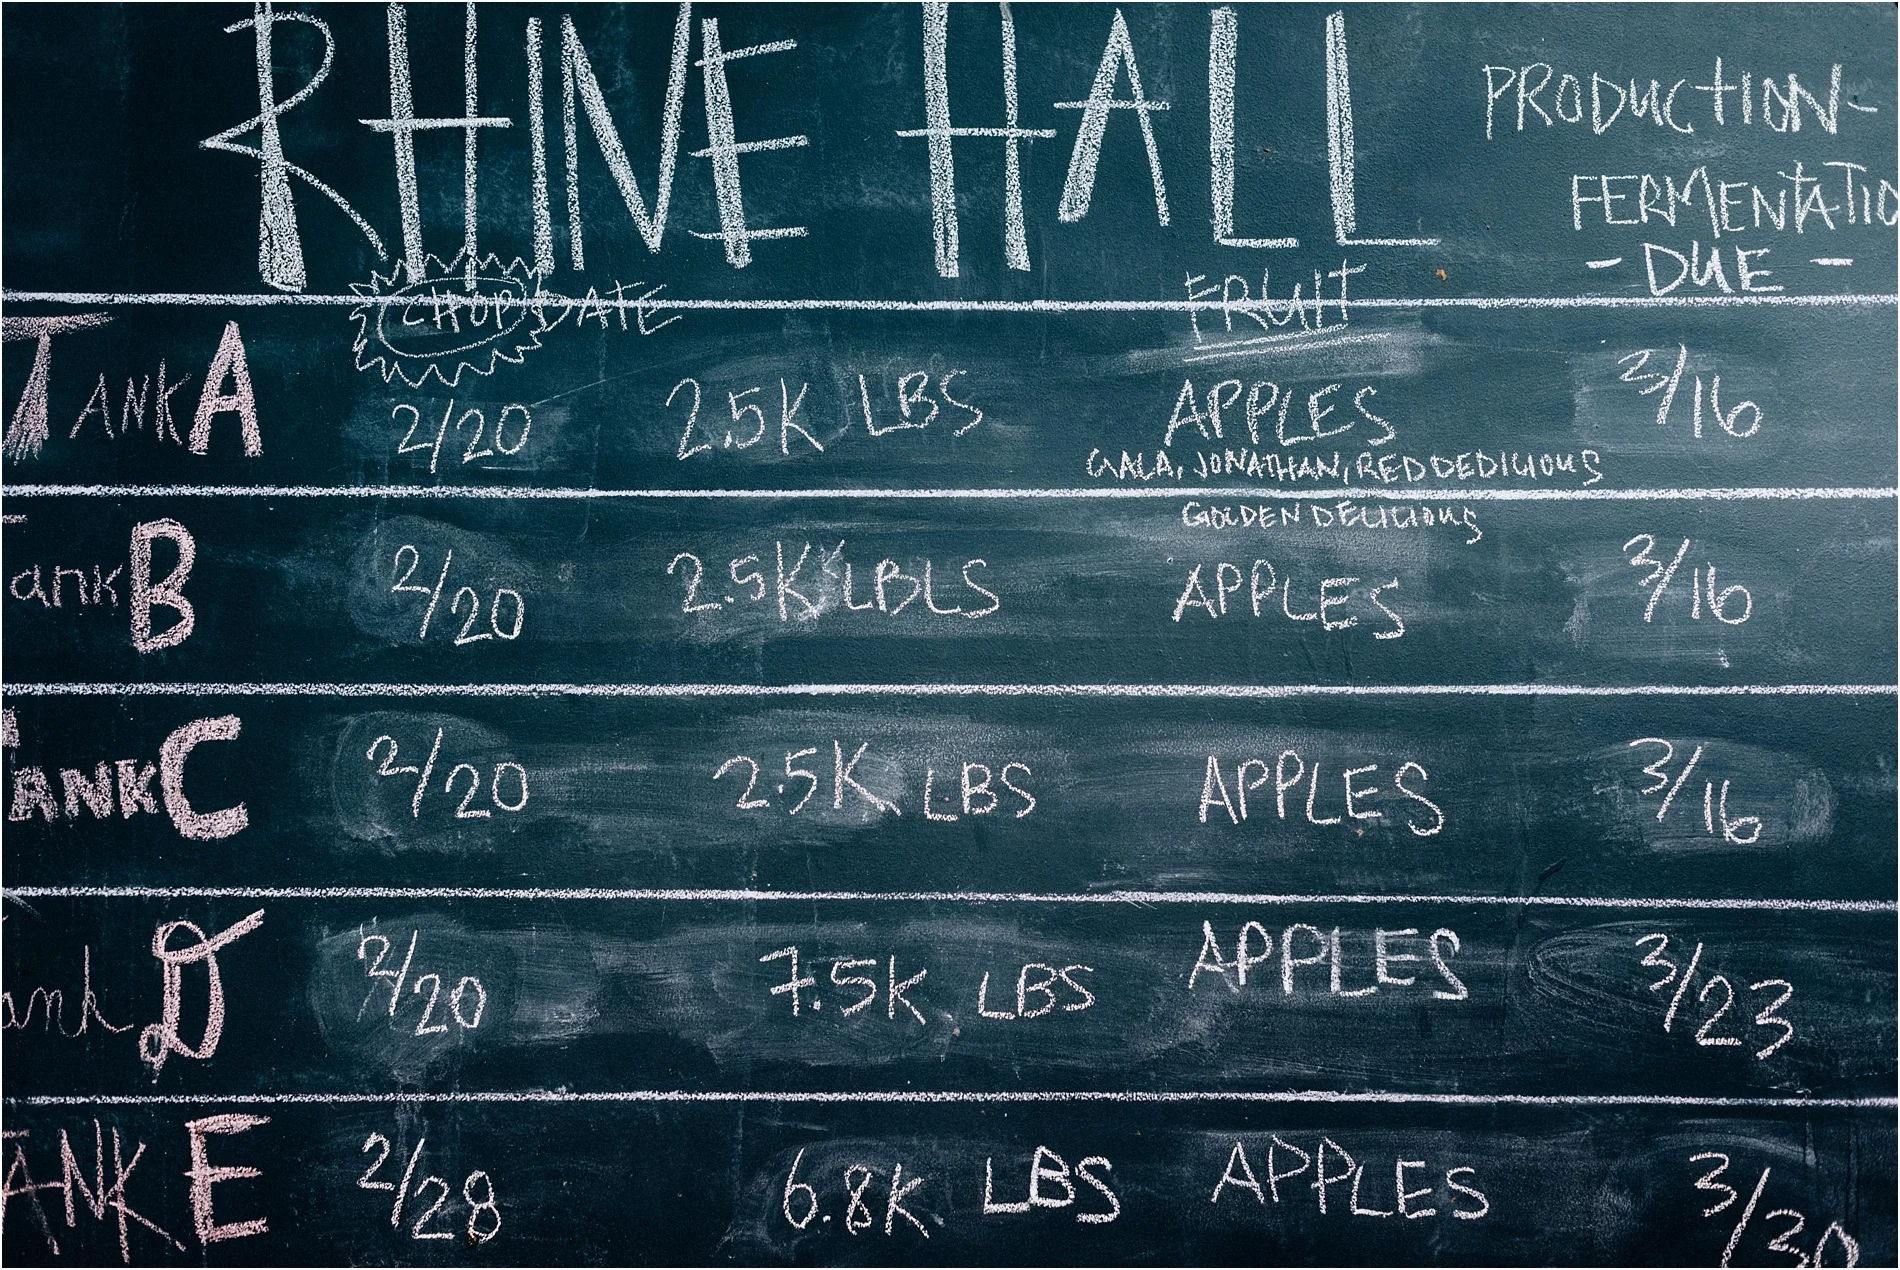 RHINE HALL
PRODUCTION-
FERMENTATIO
- DUE -
CHOP DATE
FRUIT
TANK A 2/20 2.5K LBS APPLES 3/16
GALA, JONATHAN, RED DEDILIOUS
GOLDEN DELICIOUS
Tank B 2/20 2.5K LBLS APPLES 3/16
TANK C 2/20 2.5K LBS APPLES 3/16
ank D 2/20 7.5K LBS APPLES 3/23
ANK E 2/28 6.8K LBS APPLES 3/30